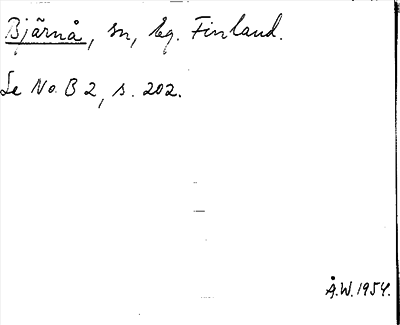 Bjärnå, sn, lg. Finland.
Se No. B 2, s. 202.
Å.W. 1954.